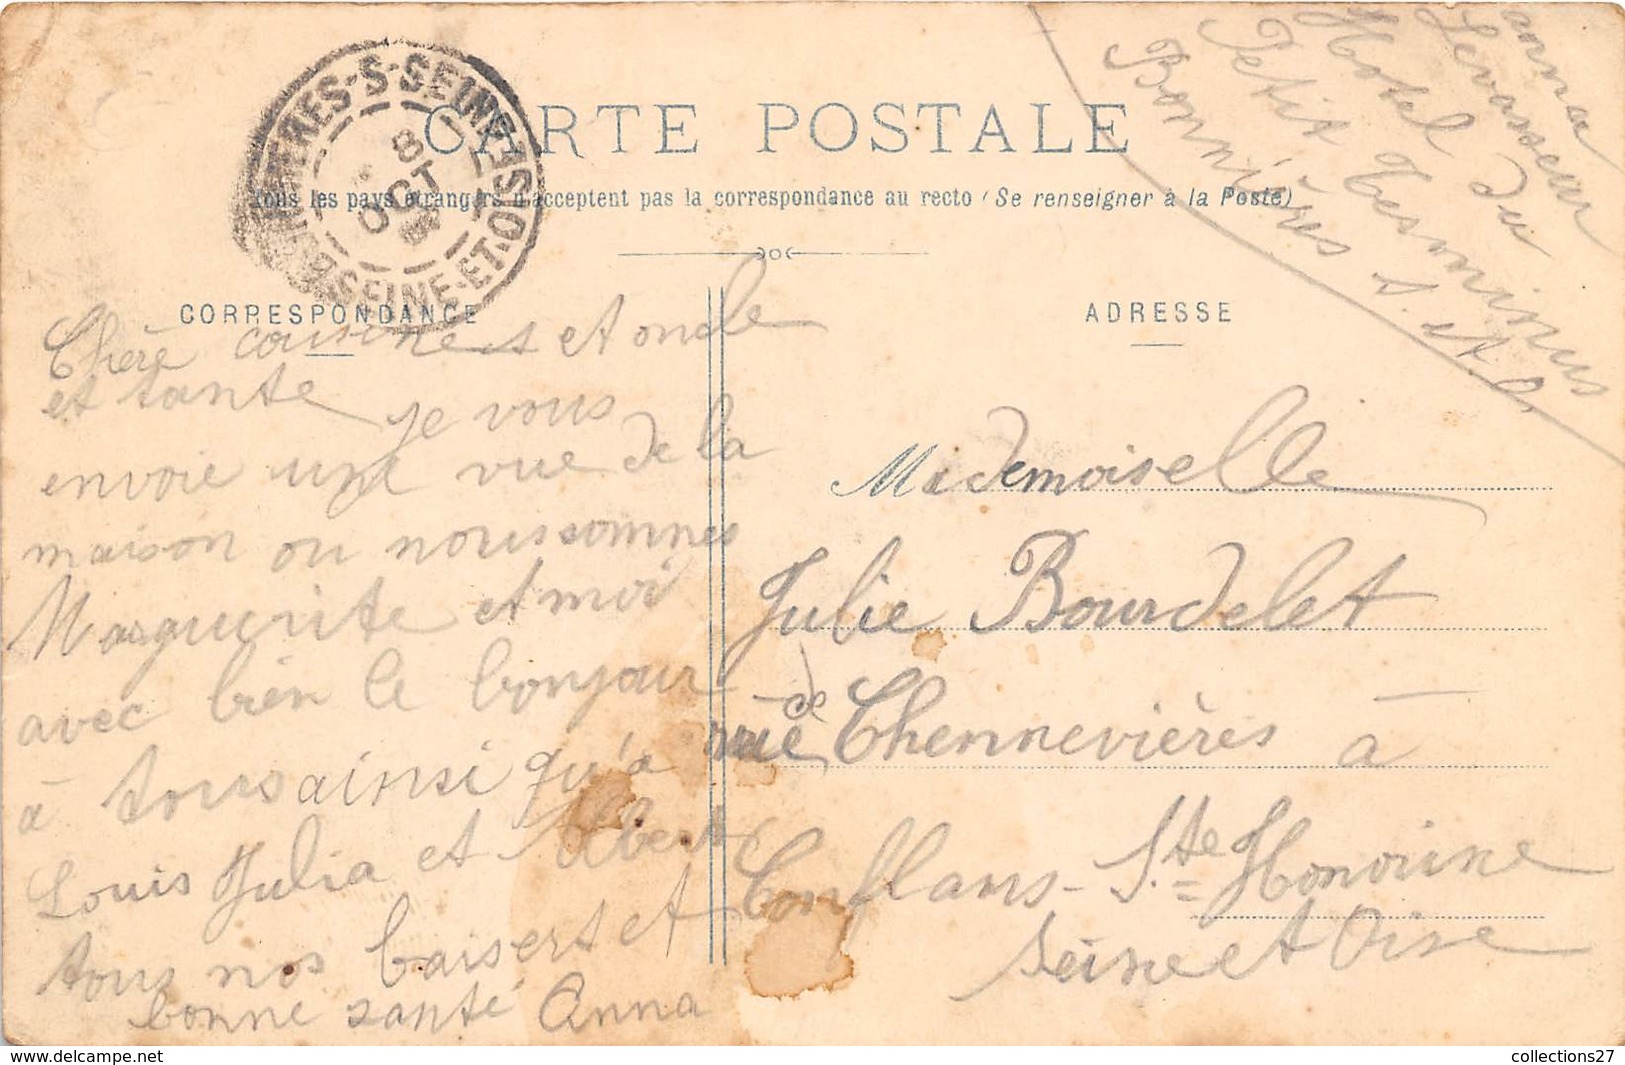 CARTE POSTALE
Tous les pays étrangers n'acceptent pas la correspondance au recto (Se renseigner à la Poste)
CORRESPONDANCE
ADRESSE
S-SEINE
8
OCT
SEINE-ET-OISE
anna
Levasseur
Hotel du
Petit Terminus
Bonnières s. et o.
Chère cousines et oncle
et tante je vous
envoie une vue de la
maison ou nous sommes
Marguerite et moi
avec bien le bonjour
à tous ainsi qu'a
Louis Julia et Albert
tous nos baisert et
bonne santé Anna
Mademoiselle
Julie Bourdelet
rue de Chennevières à
Conflans-Ste Honorine
Seine et Oise
collections27